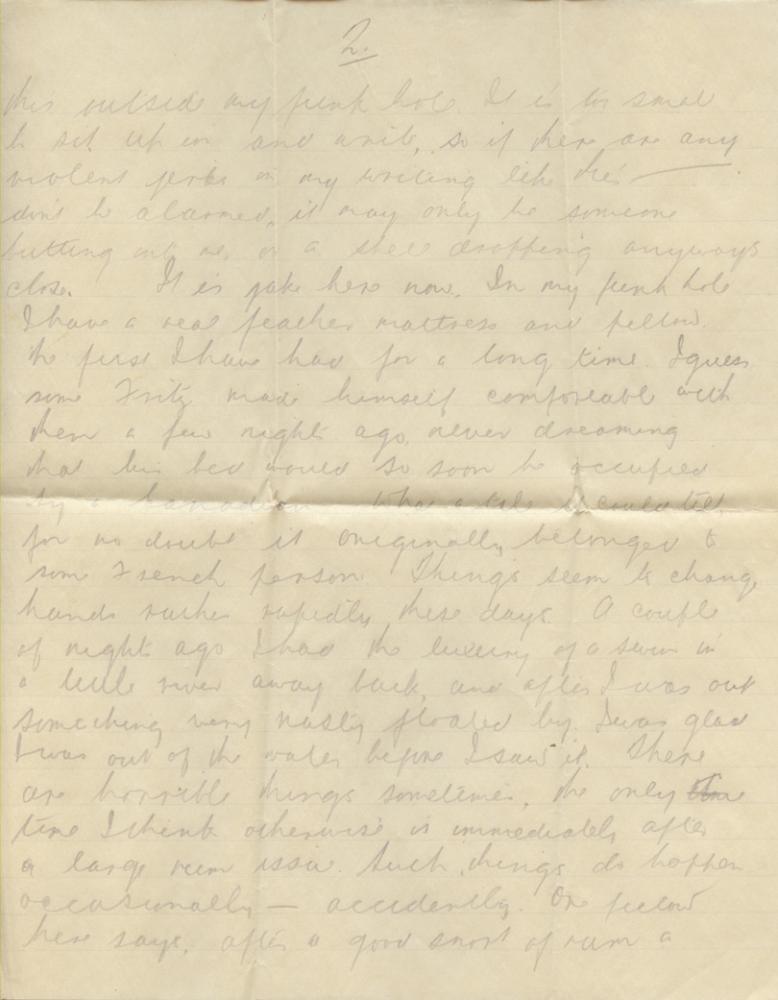 2.
this outside my funk hole. It is too small
to sit up in and write, so if there are any
violent jerks in my writing like this —
don't be alarmed, it may only be someone
butting into me, or a shell dropping anyways
close. It is jake here now. In my funk hole
I have a real feather mattress and pillow.
the first I have had for a long time. I guess
some Fritz made himself comfortable with
them a few nights ago, never dreaming
that his bed would so soon be occupied
by a Canadian. What a tale it could tell,
for no doubt it originally belonged to
some French person. Things seem to change
hands rather rapidly these days. A couple
of nights ago I had the luxury of a swim in
a little river away back, and after I was out
something very nasty floated by. I was glad
I was out of the water before I saw it. There
are horrible things sometimes, the only
time I think otherwise is immediately after
a large rum issue. Such things do happen
occasionally — accidently. One fellow
here says, after a good snort of rum a